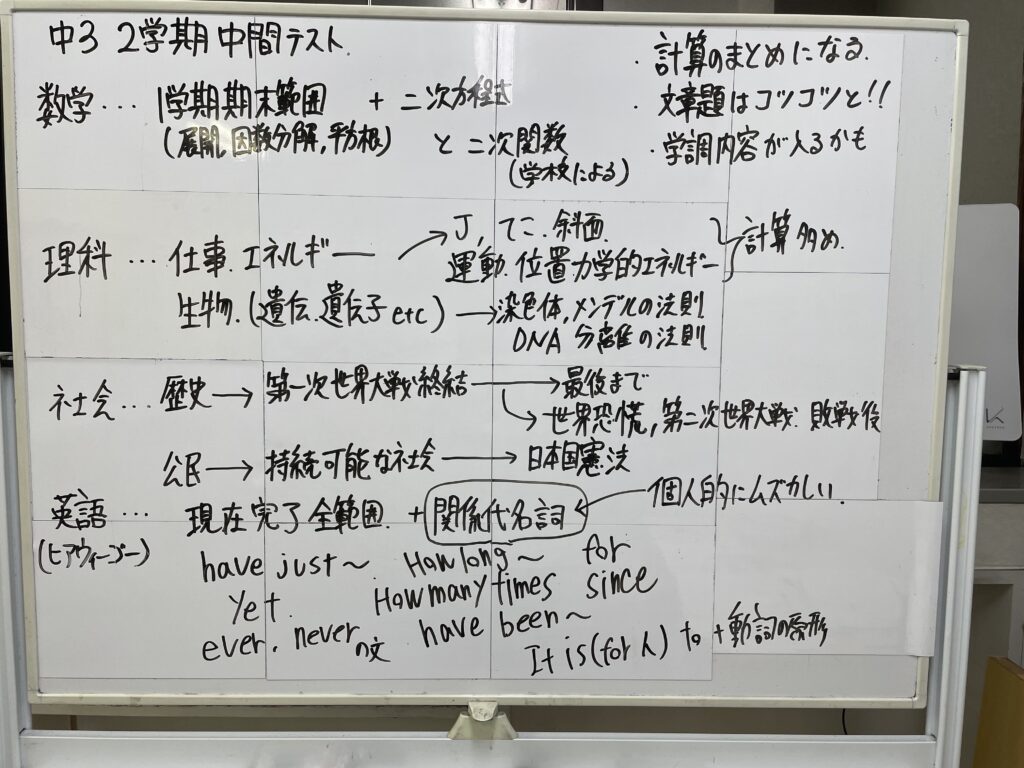 中3 2学期中間テスト.
・計算のまとめになる.
・文章題はコツコツと!!
・学調内容が入るかも
数学… 1学期期末範囲 + 二次方程式
(展開,因数分解,平方根) と 二次関数
(学校による)
理科… 仕事.エネルギー → J,てこ.斜面.
運動.位置力学的エネルギー 計算多め.
生物.(遺伝.遺伝子etc) → 染色体,メンデルの法則
DNA 分離の法則
社会… 歴史 → 第一次世界大戦終結 → 最後まで
→ 世界恐慌,第二次世界大戦.敗戦後
公民 → 持続可能な社会 → 日本国憲法
英語… 現在完了全範囲. + 関係代名詞 ← 個人的にムズかしい.
(ヒアウィーゴー)
have just~. How long~ for
yet. How many times since
ever.never の文 have been~
It is(for 人) to +動詞の原形